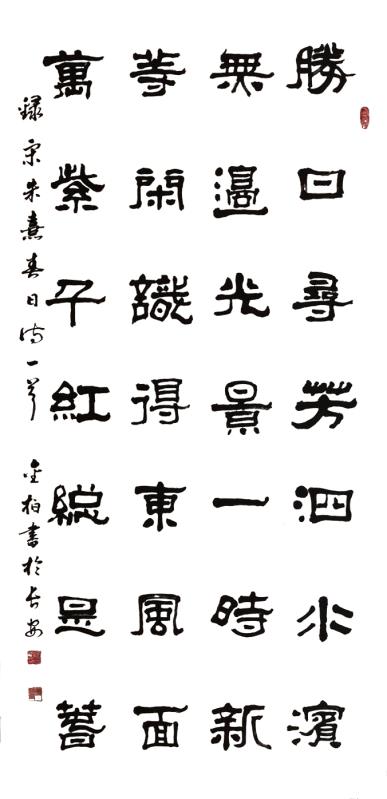 勝日尋芳泗水濱
無邊光景一時新
等閑識得東風面
萬紫千紅總是萅
錄宋朱熹春日詩一首 金柏書於長安